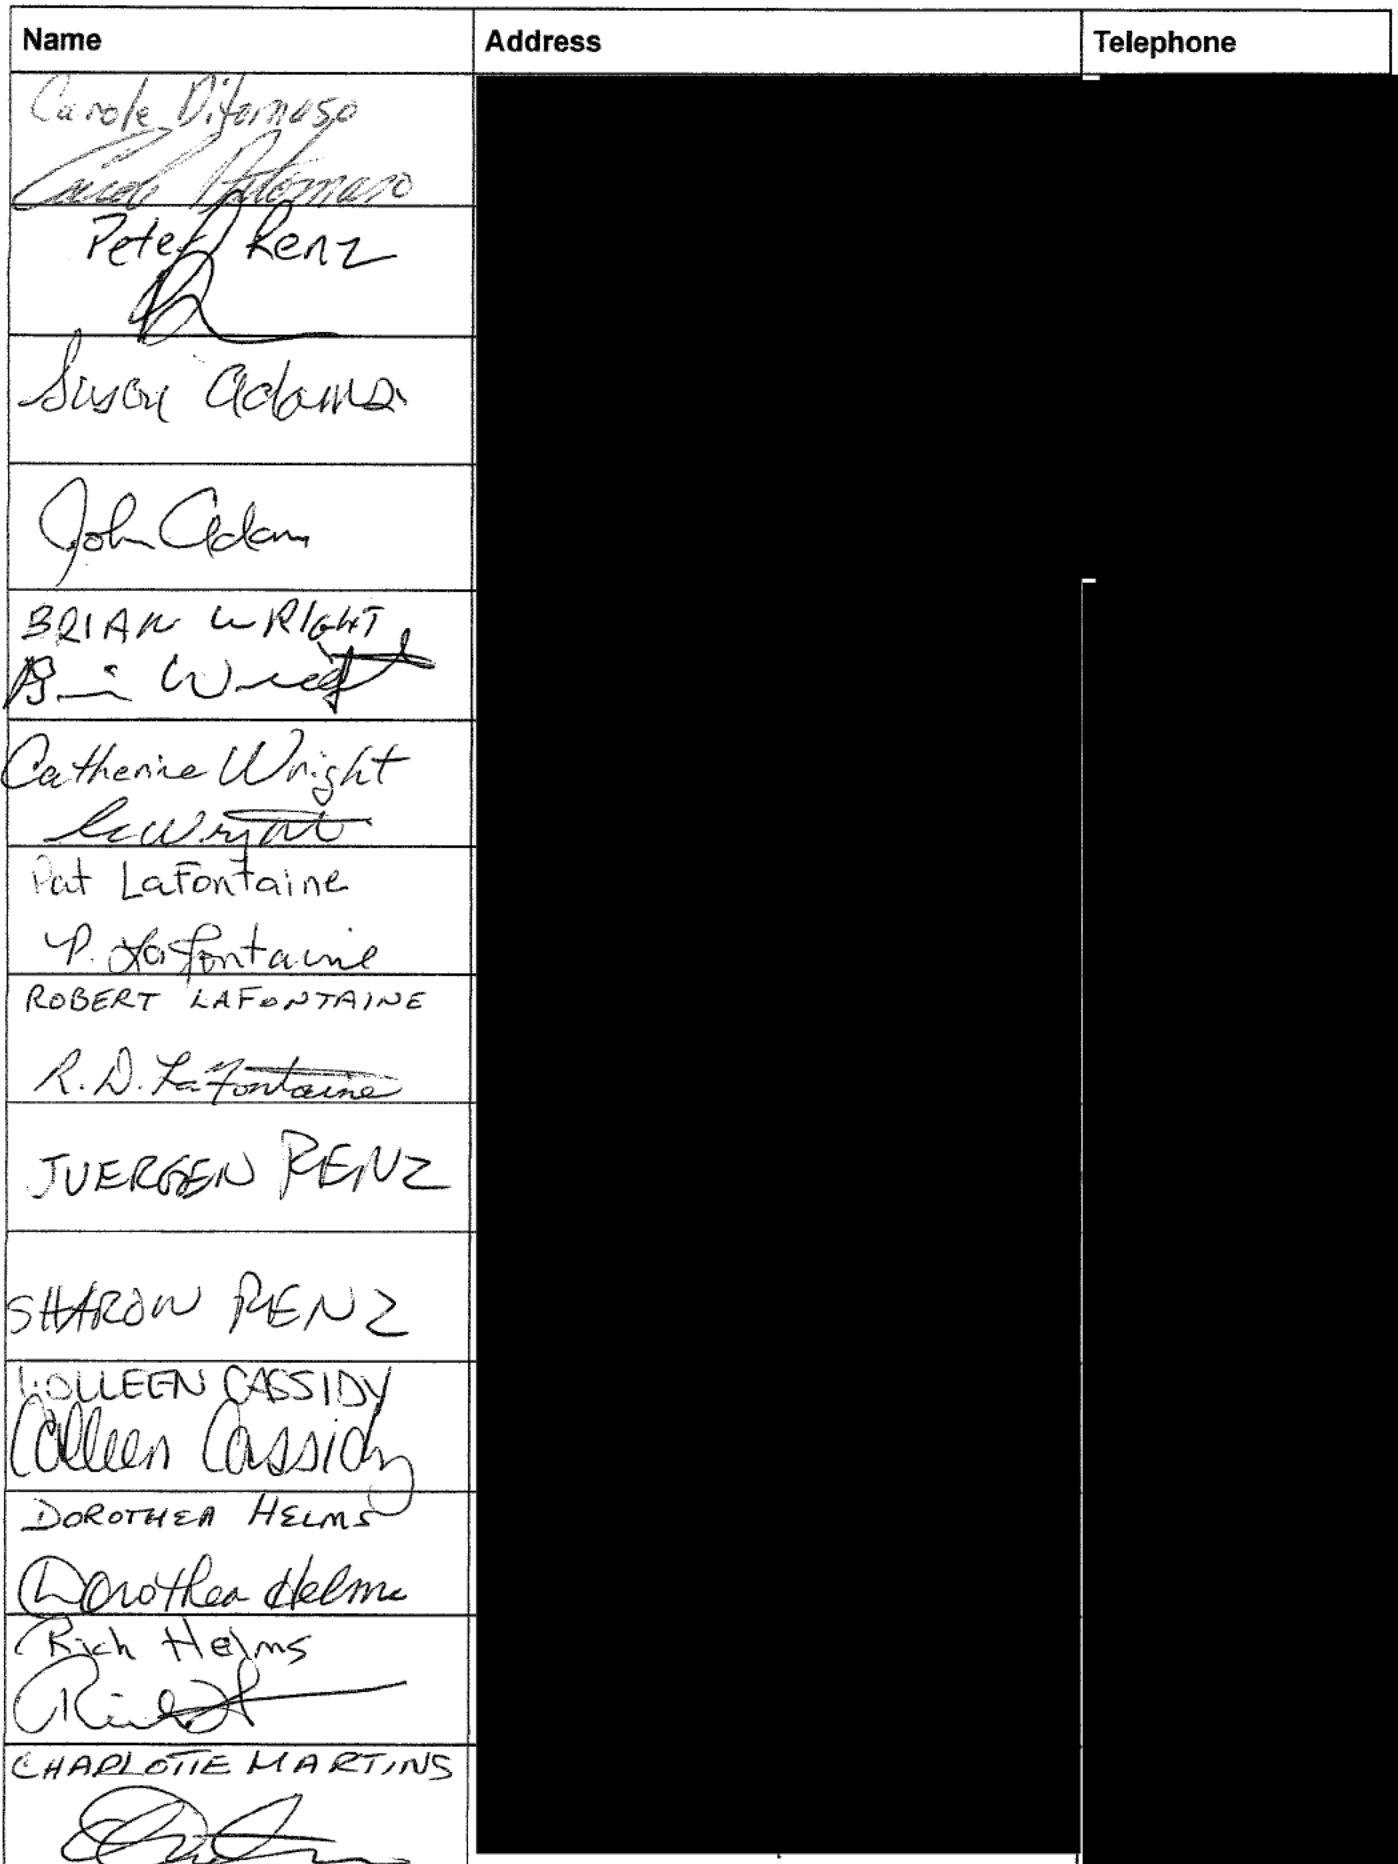 Name Address Telephone
Carole Ditomaso
Carole Ditomaso
Peter Renz
Susan Adams
John Adam
BRIAN WRIGHT
Brian Wright
Catherine Wright
C Wright
Pat LaFontaine
P. LaFontaine
ROBERT LAFONTAINE
R. D. LaFontaine
JUERGEN RENZ
SHARON RENZ
COLLEEN CASSIDY
Colleen Cassidy
DOROTHEA HELMS
Dorothea Helms
Rich Helms
CHARLOTTE MARTINS